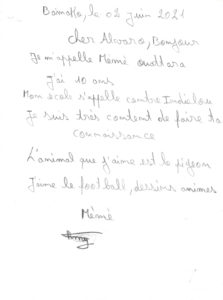 Bamako, le 02 juin 2021
cher Alvaro, Bonjour
Je m'appelle Mémé Ouattara
J'ai 10 ans
Mon ecole s'appelle centre
Je suis très content de faire ta
connaissance
L'animal que j'aime est le pigeon
J'aime le football, dessins animes
Mémé